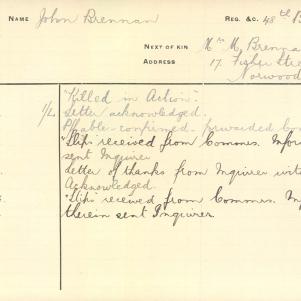 NAME John Brennan REG. &C. 48th B
NEXT OF KIN Mrs M Brenna
ADDRESS 17 Fisher Stre
Norwood
"Killed in Action"
1/L Letter acknowledged.
confirmed forwarded
"Slips received from Commrs. Infor
sent Inquirer
Letter of thanks from Inquirer wit
Acknowledged.
"Slips received from Commrs. In
therein sent Inquirer.